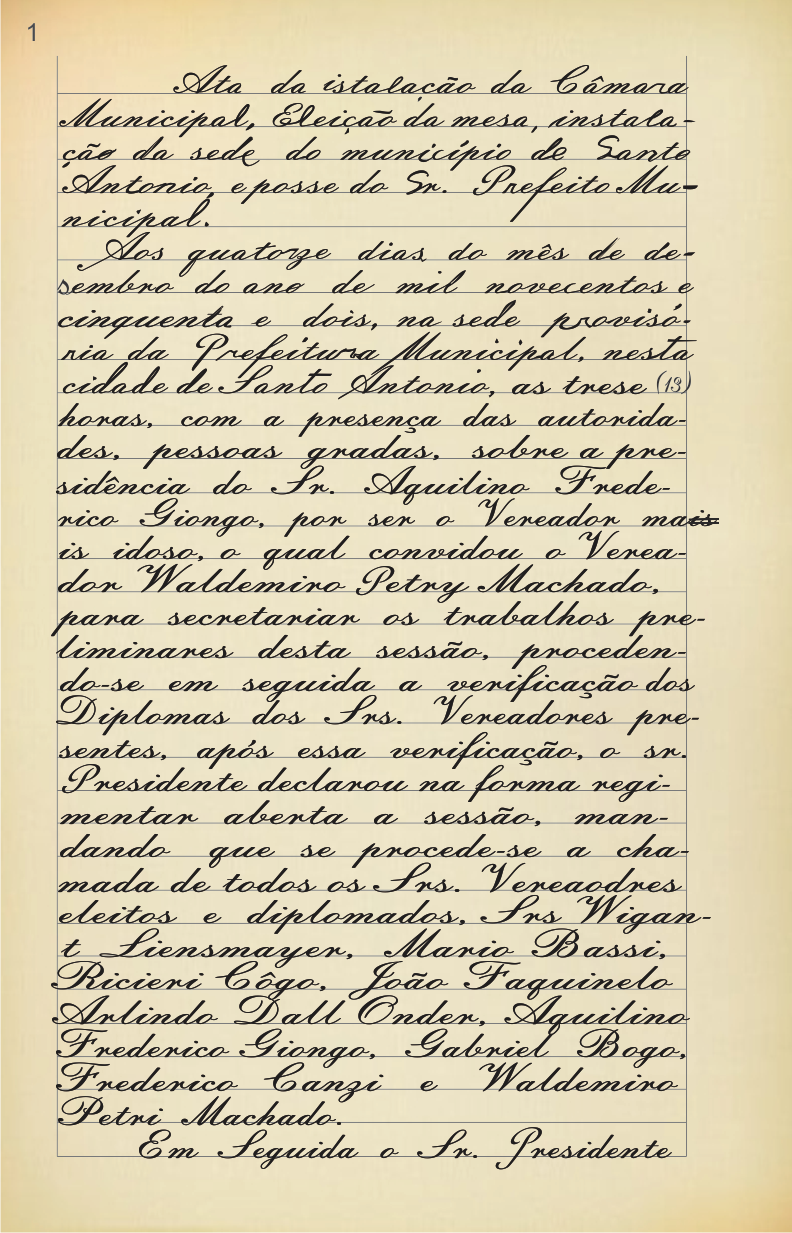 1
Ata da istalação da Câmara
Municipal, Eleição da mesa, instala-
ção da sede do município de Santo
Antonio, e posse do Sr. Prefeito Mu-
nicipal.
Aos quatorze dias do mês de de-
sembro do ano de mil novecentos e
cinquenta e dois, na sede provisó-
ria da Prefeitura Municipal, nesta
cidade de Santo Antonio, as trese (13)
horas, com a presença das autorida-
des, pessoas gradas, sobre a pre-
sidência do Sr. Aquilino Frede-
rico Giongo, por ser o Vereador mais
is idoso, o qual convidou o Verea-
dor Waldemiro Petry Machado,
para secretariar os trabalhos pre-
liminares desta sessão, proceden-
do-se em seguida a verificação dos
Diplomas dos Srs. Vereadores pre-
sentes, após essa verificação, o sr.
Presidente declarou na forma regi-
mentar aberta a sessão, man-
dando que se procede-se a cha-
mada de todos os Srs. Vereaodres
eleitos e diplomados, Srs Wigan-
t Liensmayer, Mario Bassi,
Ricieri Côgo, João Faquinelo
Arlindo Dall Onder, Aquilino
Frederico Giongo, Gabriel Bogo,
Frederico Canzi e Waldemiro
Petri Machado.
Em Seguida o Sr. Presidente